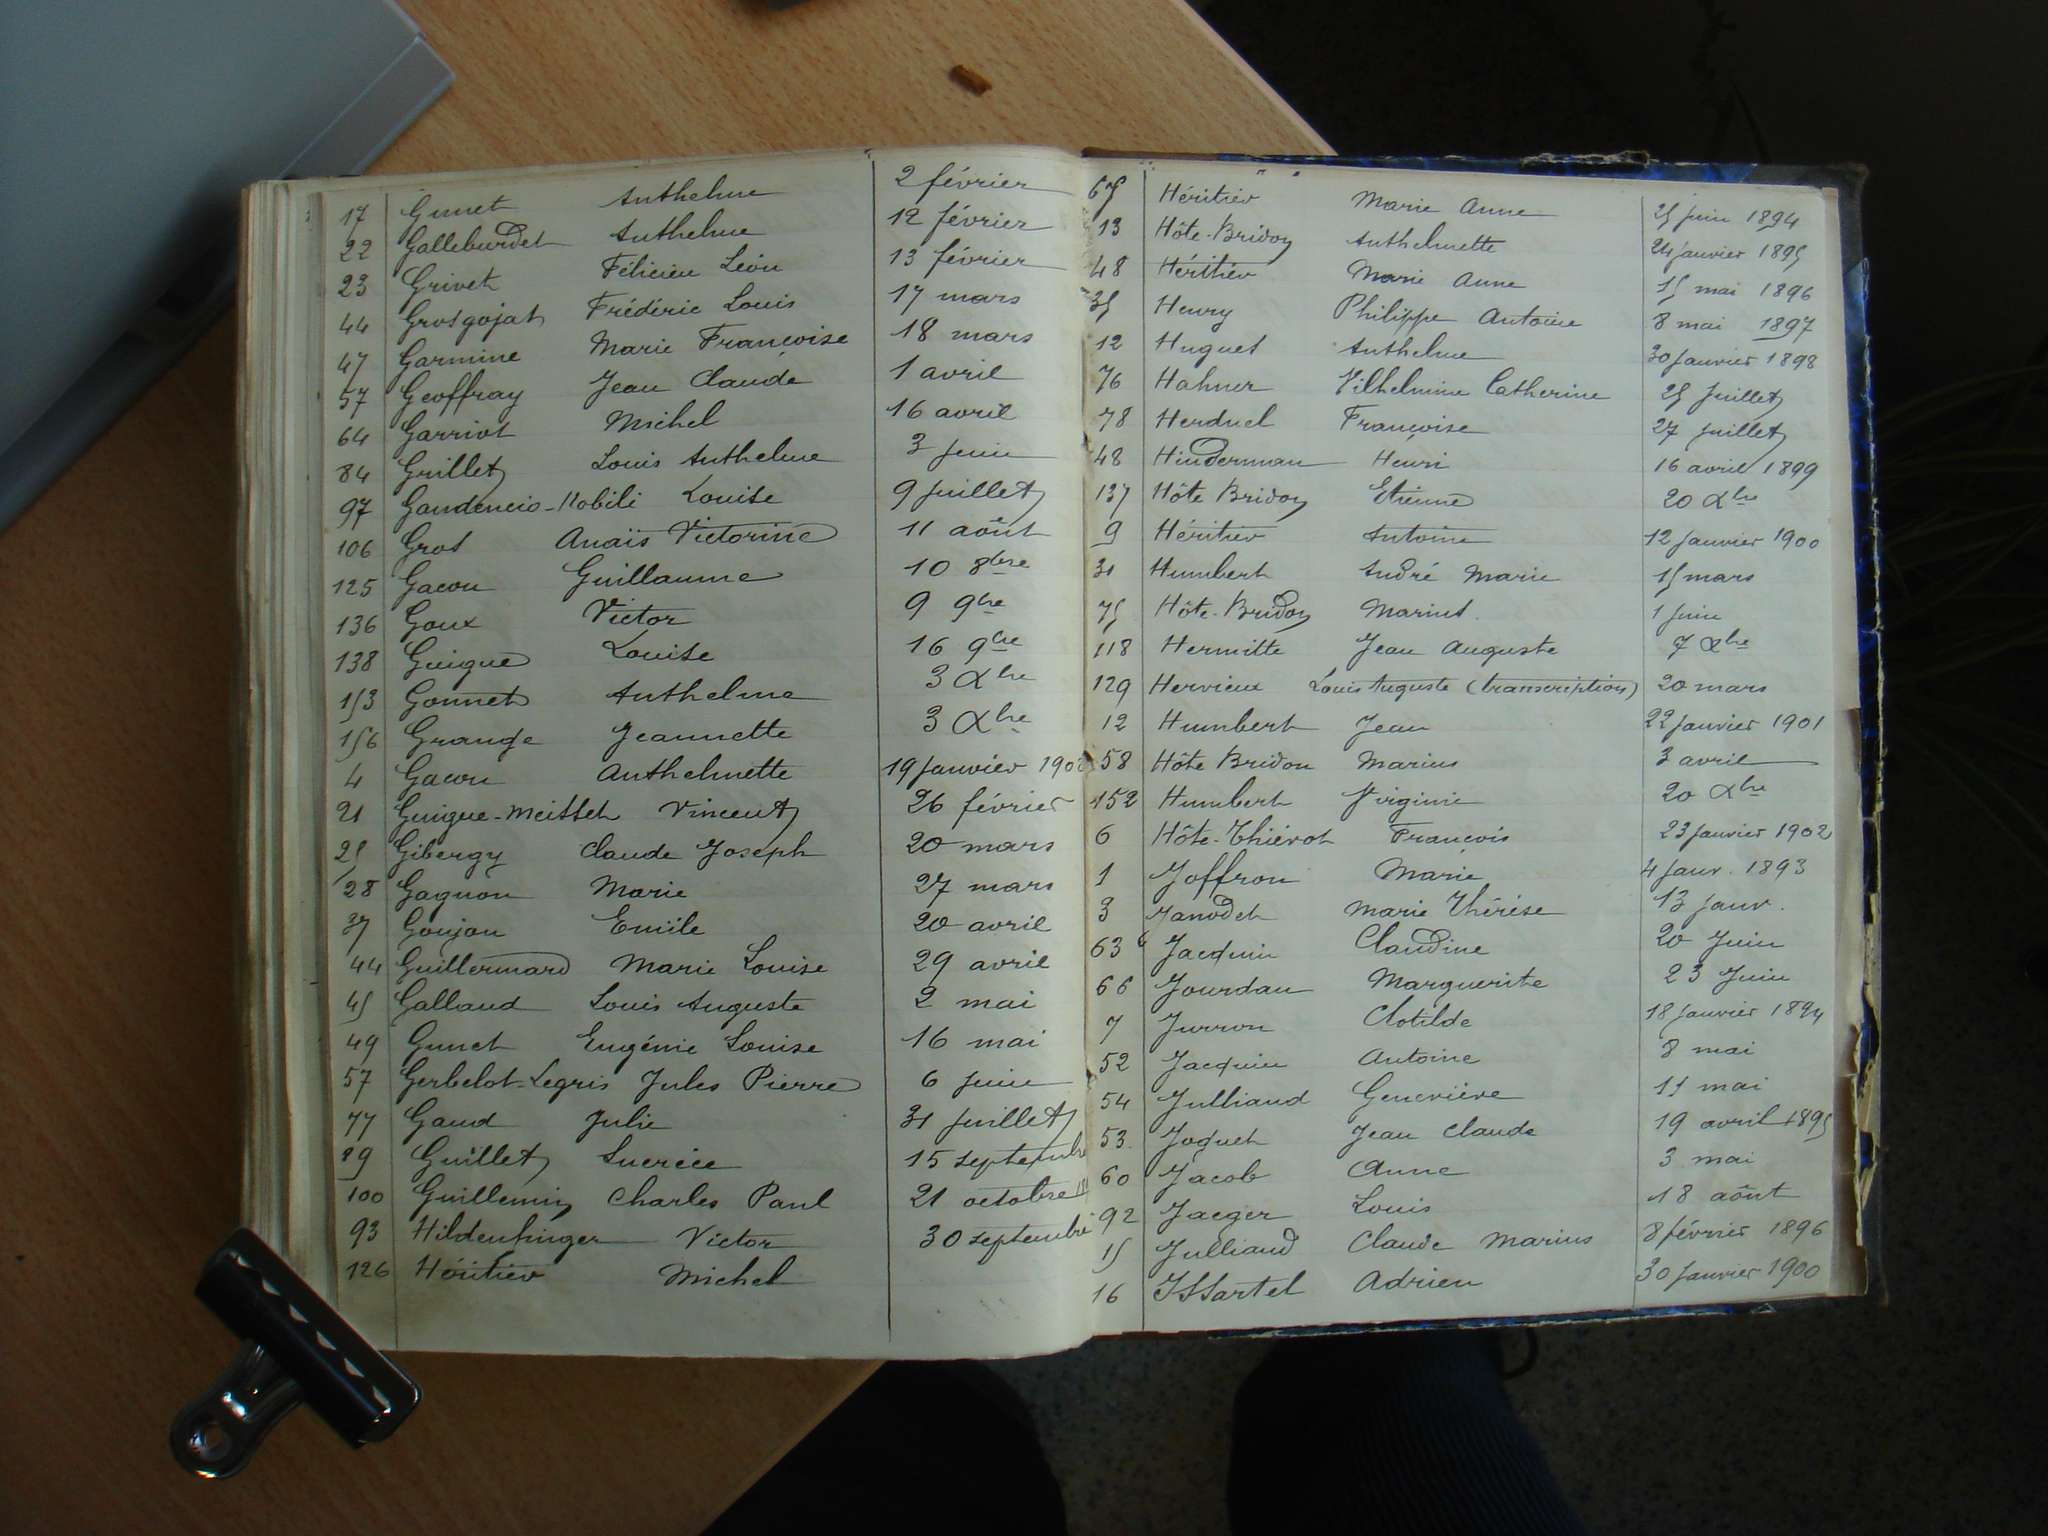 17 Gunet Anthelme 2 février
22 Galleburdet Anthelme 12 février
23 Grivet Félicien Léon 13 février
44 Grosgojat Frédéric Louis 17 mars
47 Garmine Marie Françoise 18 mars
57 Geoffray Jean Claude 1 avril
64 Garriot Michel 16 avril
84 Grillet Louis Anthelme 3 juin
97 Gaudencio-Nobili Louise 9 juillet
106 Gros Anaïs Victorine 11 août
125 Gacon Guillaume 10 8bre
136 Goux Victor 9 9bre
138 Guigue Louise 16 9bre
153 Gonnet Anthelme 3 Xbre
156 Grange Jeannette 3 Xbre
4 Gacon Anthelmette 19 janvier 1902
21 Guigue-Meisset Vincent 26 février
25 Gibergy Claude Joseph 20 mars
28 Gagnon Marie 27 mars
37 Goujon Emile 20 avril
44 Guillermard Marie Louise 29 avril
45 Galland Louis Auguste 2 mai
49 Gunet Eugénie Louise 16 mai
57 Gerbelot-Legris Jules Pierre 6 juin
77 Gaud Julie 31 juillet
89 Guillet Lucrèce 15 septembre
100 Guillemin Charles Paul 21 octobre
93 Hildenfinger Victor 30 septembre
126 Héritier Michel
67 Héritier Marie Anne 25 juin 1894
13 Hôte-Bridon Anthelmette 24 janvier 1895
48 Héritier Marie Anne 15 mai 1896
35 Henry Philippe Antoine 8 mai 1897
12 Huguet Anthelme 30 janvier 1898
76 Hahner Vilhelmine Catherine 25 juillet
78 Herduel Françoise 27 juillet
48 Hinderman Henri 16 avril 1899
137 Hôte Bridon Etienne 20 Xbre
9 Héritier Antoine 12 janvier 1900
31 Humbert André Marie 15 mars
75 Hôte-Bridon Marius 1 juin
118 Hermitte Jean Auguste 7 Xbre
129 Hervieux Louis Auguste (transcription) 20 mars
12 Humbert Jean 22 janvier 1901
58 Hôte Bridon Marius 3 avril
152 Humbert Virginie 20 Xbre
6 Hôte-Thiévot François 23 janvier 1902
1 Joffron Marie 4 janv. 1893
3 Janodet Marie Thérèse 13 janv.
63 Jacquin Claudine 20 Juin
66 Jourdan Marguerite 23 Juin
7 Jurron Clotilde 18 janvier 1894
52 Jacquin Antoine 8 mai
54 Julliand Geneviève 11 mai
53 Joguet Jean Claude 19 avril 1895
60 Jacob Anne 3 mai
92 Jaeger Louis 18 août
15 Julliand Claude Marius 8 février 1896
16 Issartel Adrien 30 janvier 1900